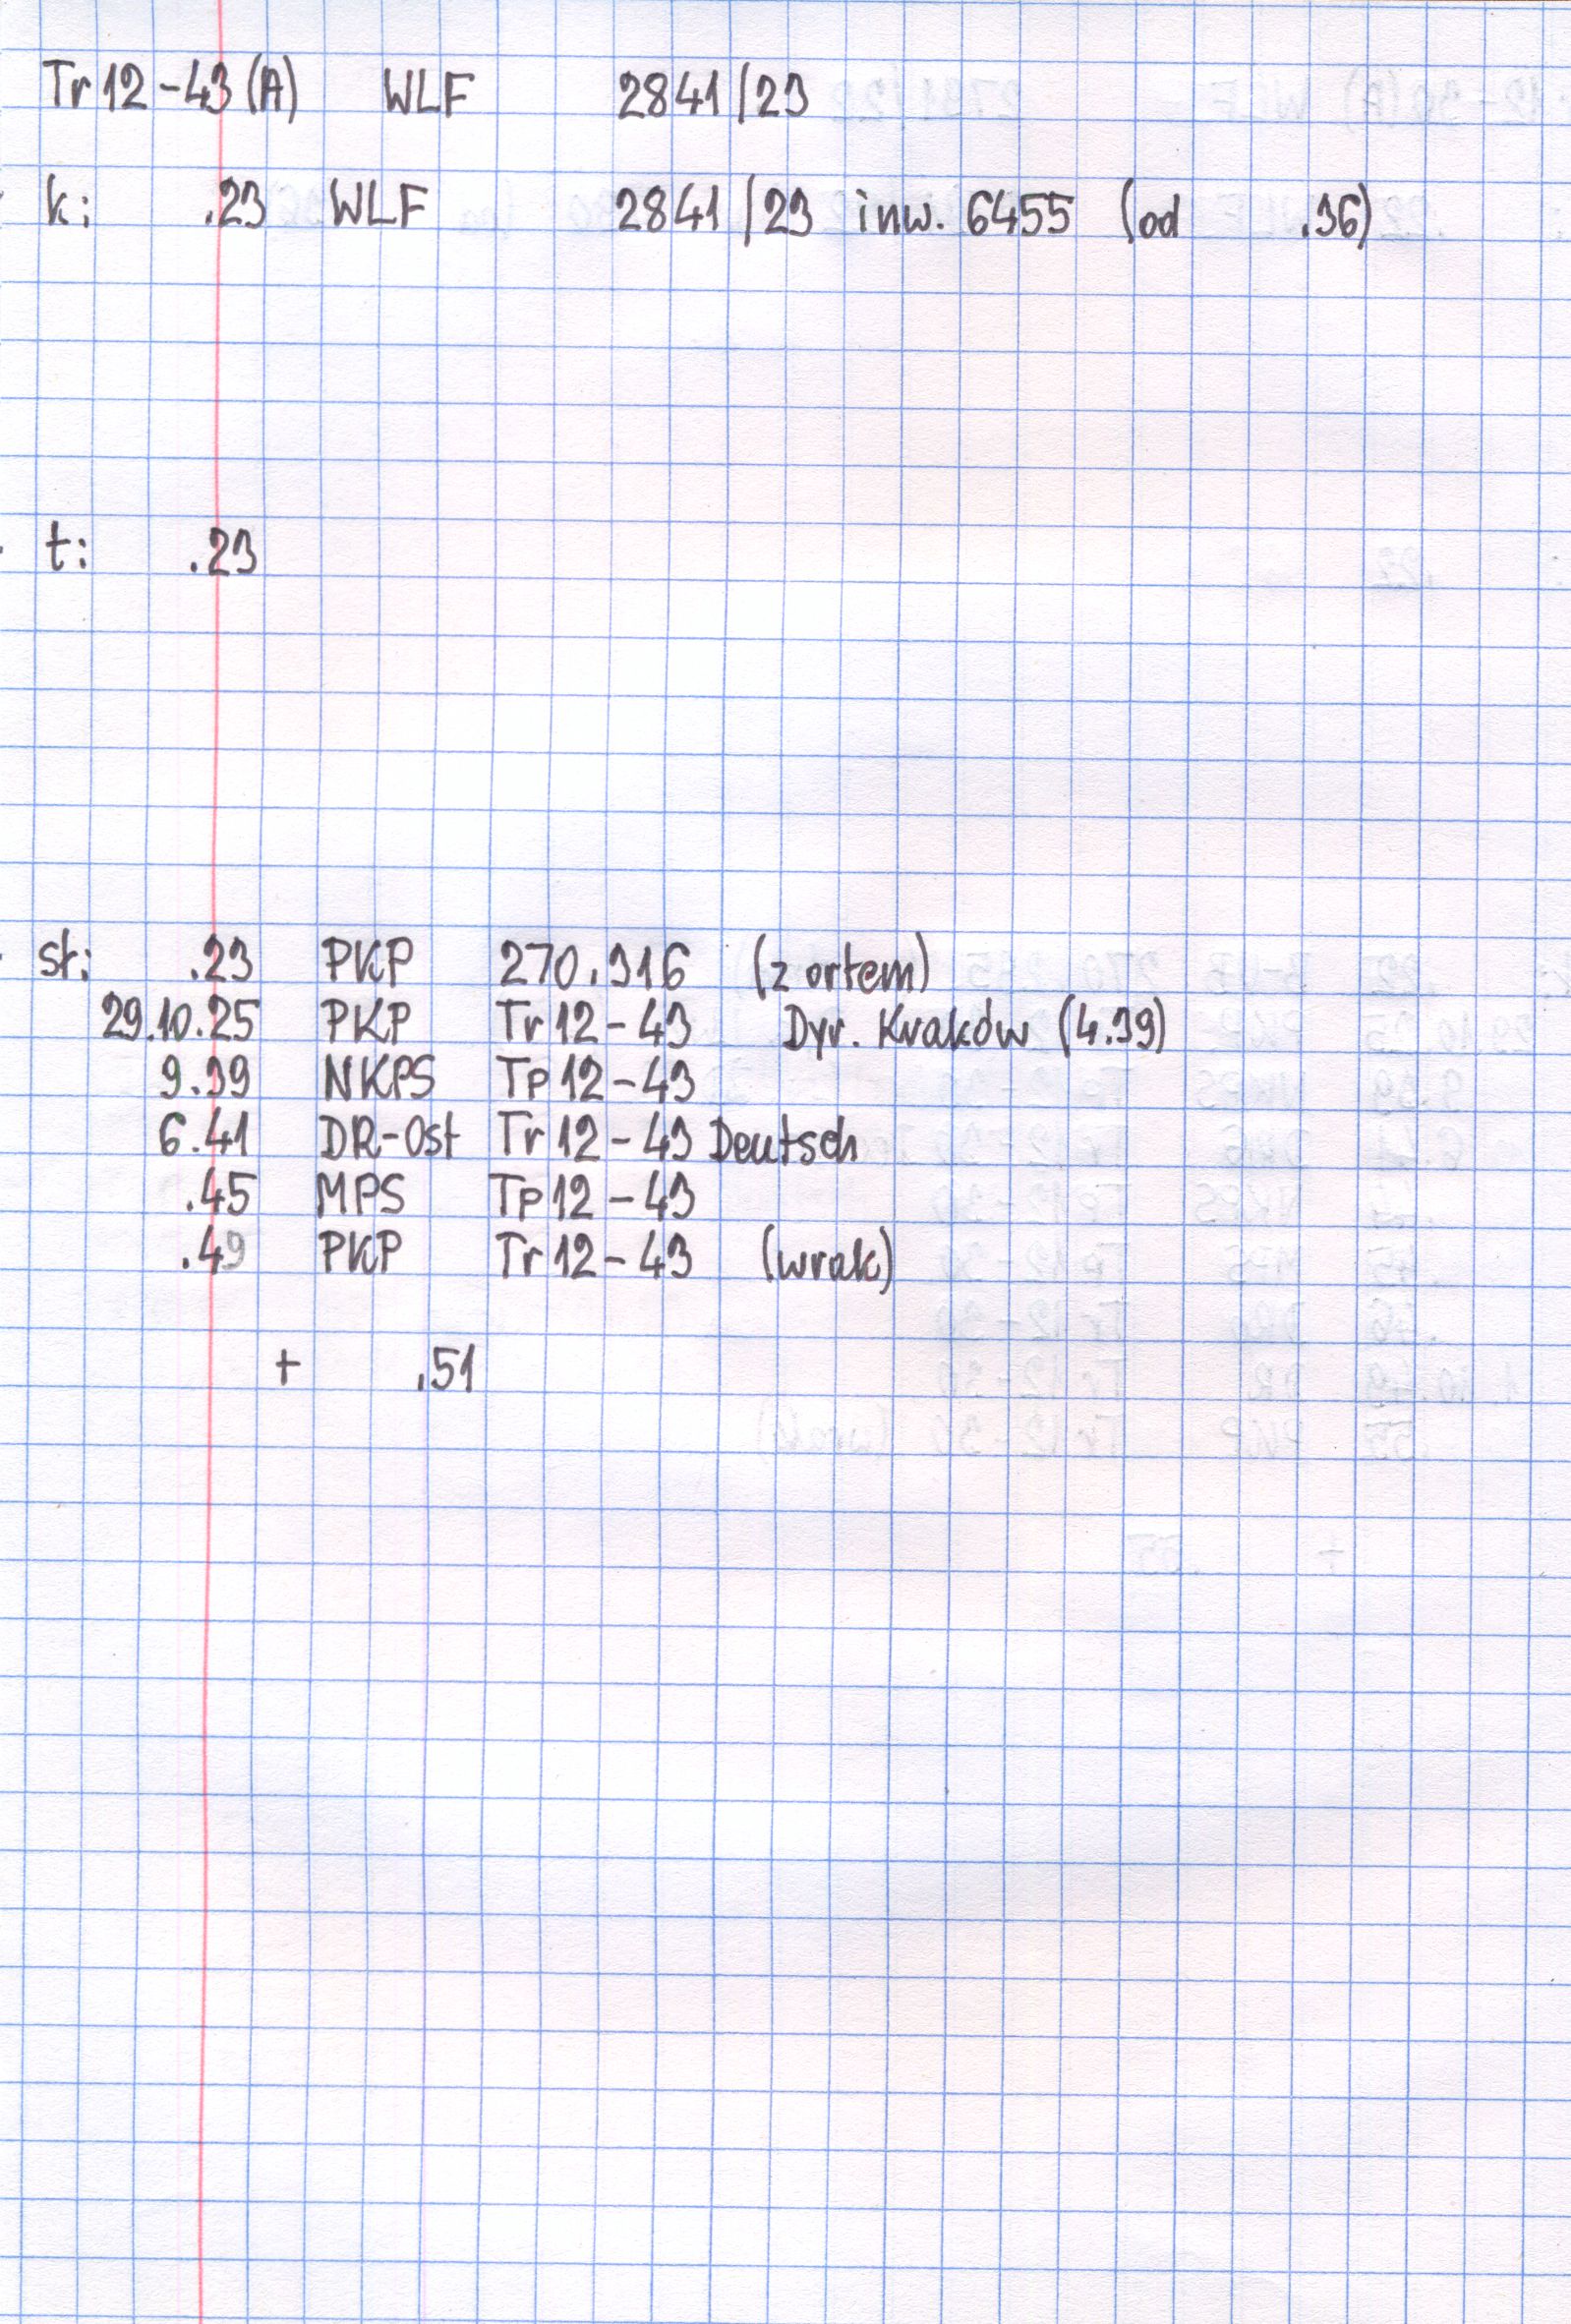 Tr 12-43 (A) WLF 2841/23
k: .23 WLF 2841/23 inw. 6455 (od .36)
t: .23
st: .23 PKP 270.316 (z orłem)
29.10.25 PKP Tr 12-43 Dyr. Kraków (4.39)
9.39 NKPS Tp 12-43
6.41 DR-Ost Tr 12-43 Deutsch
.45 MPS Tp 12-43
.49 PKP Tr 12-43 (wrak)
+ .51